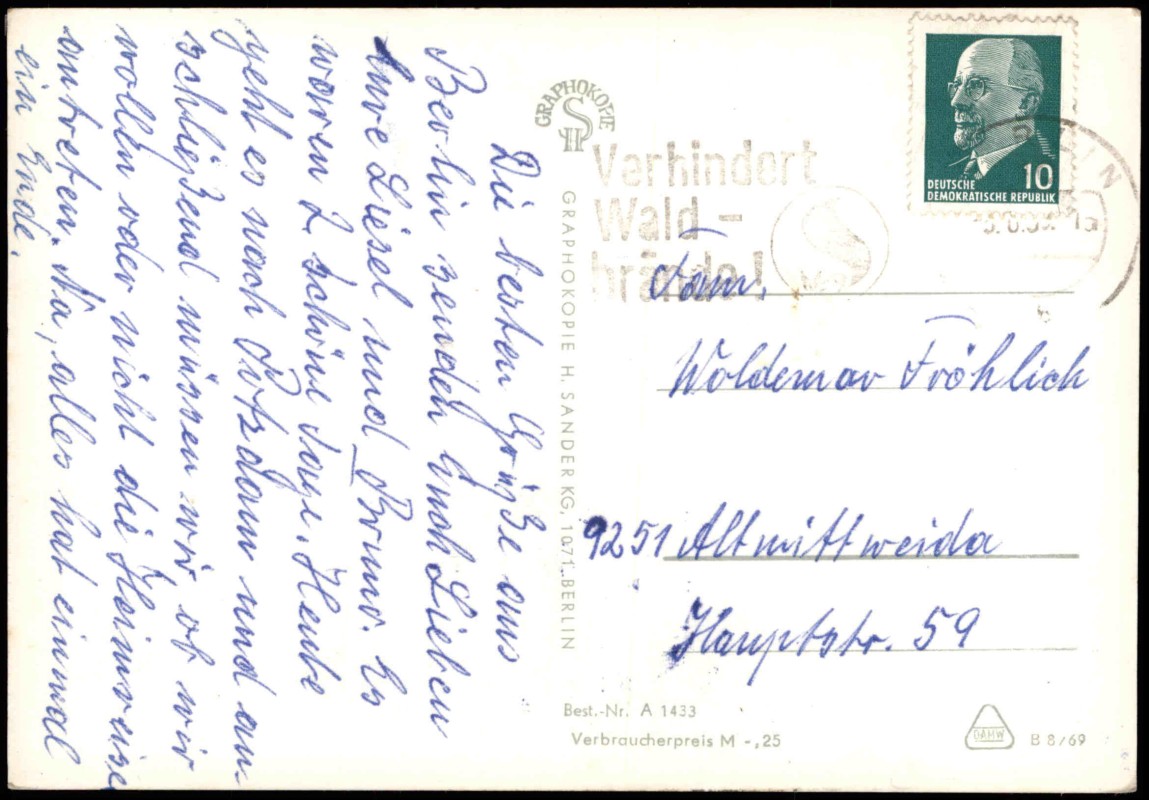 Die besten Grüße aus
Berlin senden Euch Lieben
Eure Liesel und Bruno. Es
waren 2 schöne Tage. Heute
geht es nach Potsdam und an-
schließend müssen wir, ob wir
wollen oder nicht die Heimreise
antreten. Na, alles hat einmal
ein Ende.
GRAPHOKOPIE
H S
GRAPHOKOPIE H. SANDER KG, 1071 BERLIN
Verhindert
Wald-
brände!
DEUTSCHE
DEMOKRATISCHE REPUBLIK
10
Fam.
Woldemar Fröhlich
9251 Altmittweida
Hauptstr. 59
Best.-Nr. A 1433
Verbraucherpreis M -,25
DAMW
B 8/69